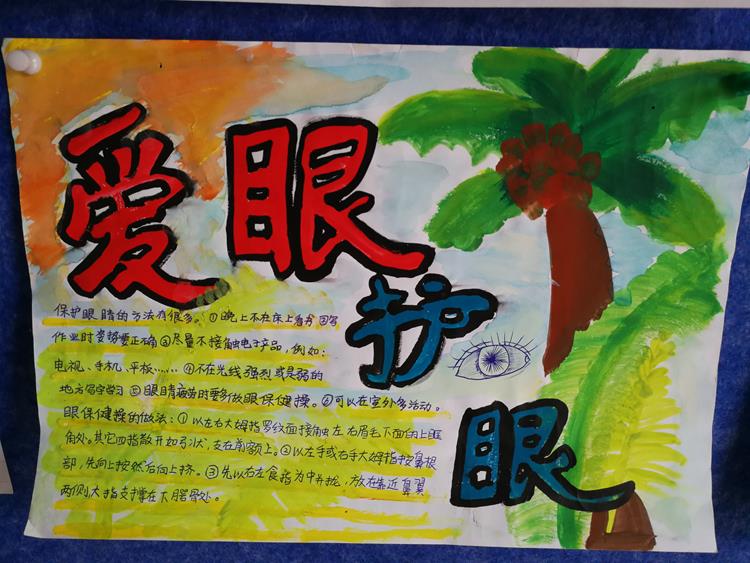 爱眼
护
眼
保护眼睛的方法有很多。①晚上不在床上看书 ②写
作业时姿势要正确 ③尽量不接触电子产品，例如：
电视、手机、平板…… ④不在光线强烈或是弱的
地方写字学习 ⑤眼睛疲劳时要多做眼保健操。⑥可以在室外多活动。
眼保健操的做法：①以左右大姆指罗纹面接触左右眉毛下面的上眶
角处。其它四指散开如弓状，支在前额上。②以左手或右手大姆指按鼻根
部，先向上按然后向上挤。③先以右左食指为中并拢，放在靠近鼻翼
两侧大指支撑在下腭骨处。